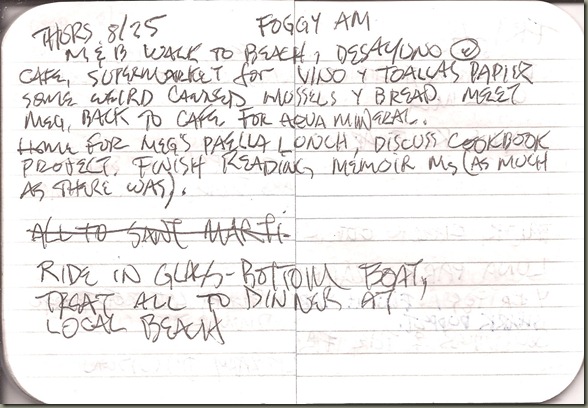 THURS 8/25 FOGGY AM
M & B WALK TO BEACH, DESAYUNO @
CAFE, SUPERMARKET for VINO Y TOALLAS PAPIER
SOME WEIRD CANNED MUSSELS Y BREAD. MEET
MEG, BACK TO CAFE FOR AQUA MINERAL.
HOME FOR MEG'S PAELLA LUNCH, DISCUSS COOKBOOK
PROJECT. FINISH READING MEMOIR MS (AS MUCH
AS THERE WAS).
ALL TO SANT MARTI-
RIDE IN GLASS-BOTTOM BOAT,
TREAT ALL TO DINNER AT
LOCAL BEACH